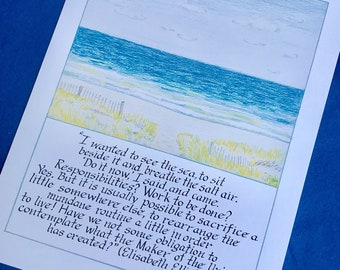 "I wanted to see the sea, to sit
beside it and breathe the salt air.
Do it now, I said, and came.
Responsibilities? Work to be done?
Yes. But it is usually possible to sacrifice a
little somewhere else, to rearrange the
mundane routine a little in order
to live! Have we not some obligation to
contemplate what the Maker of the
has created?" (Elisabeth